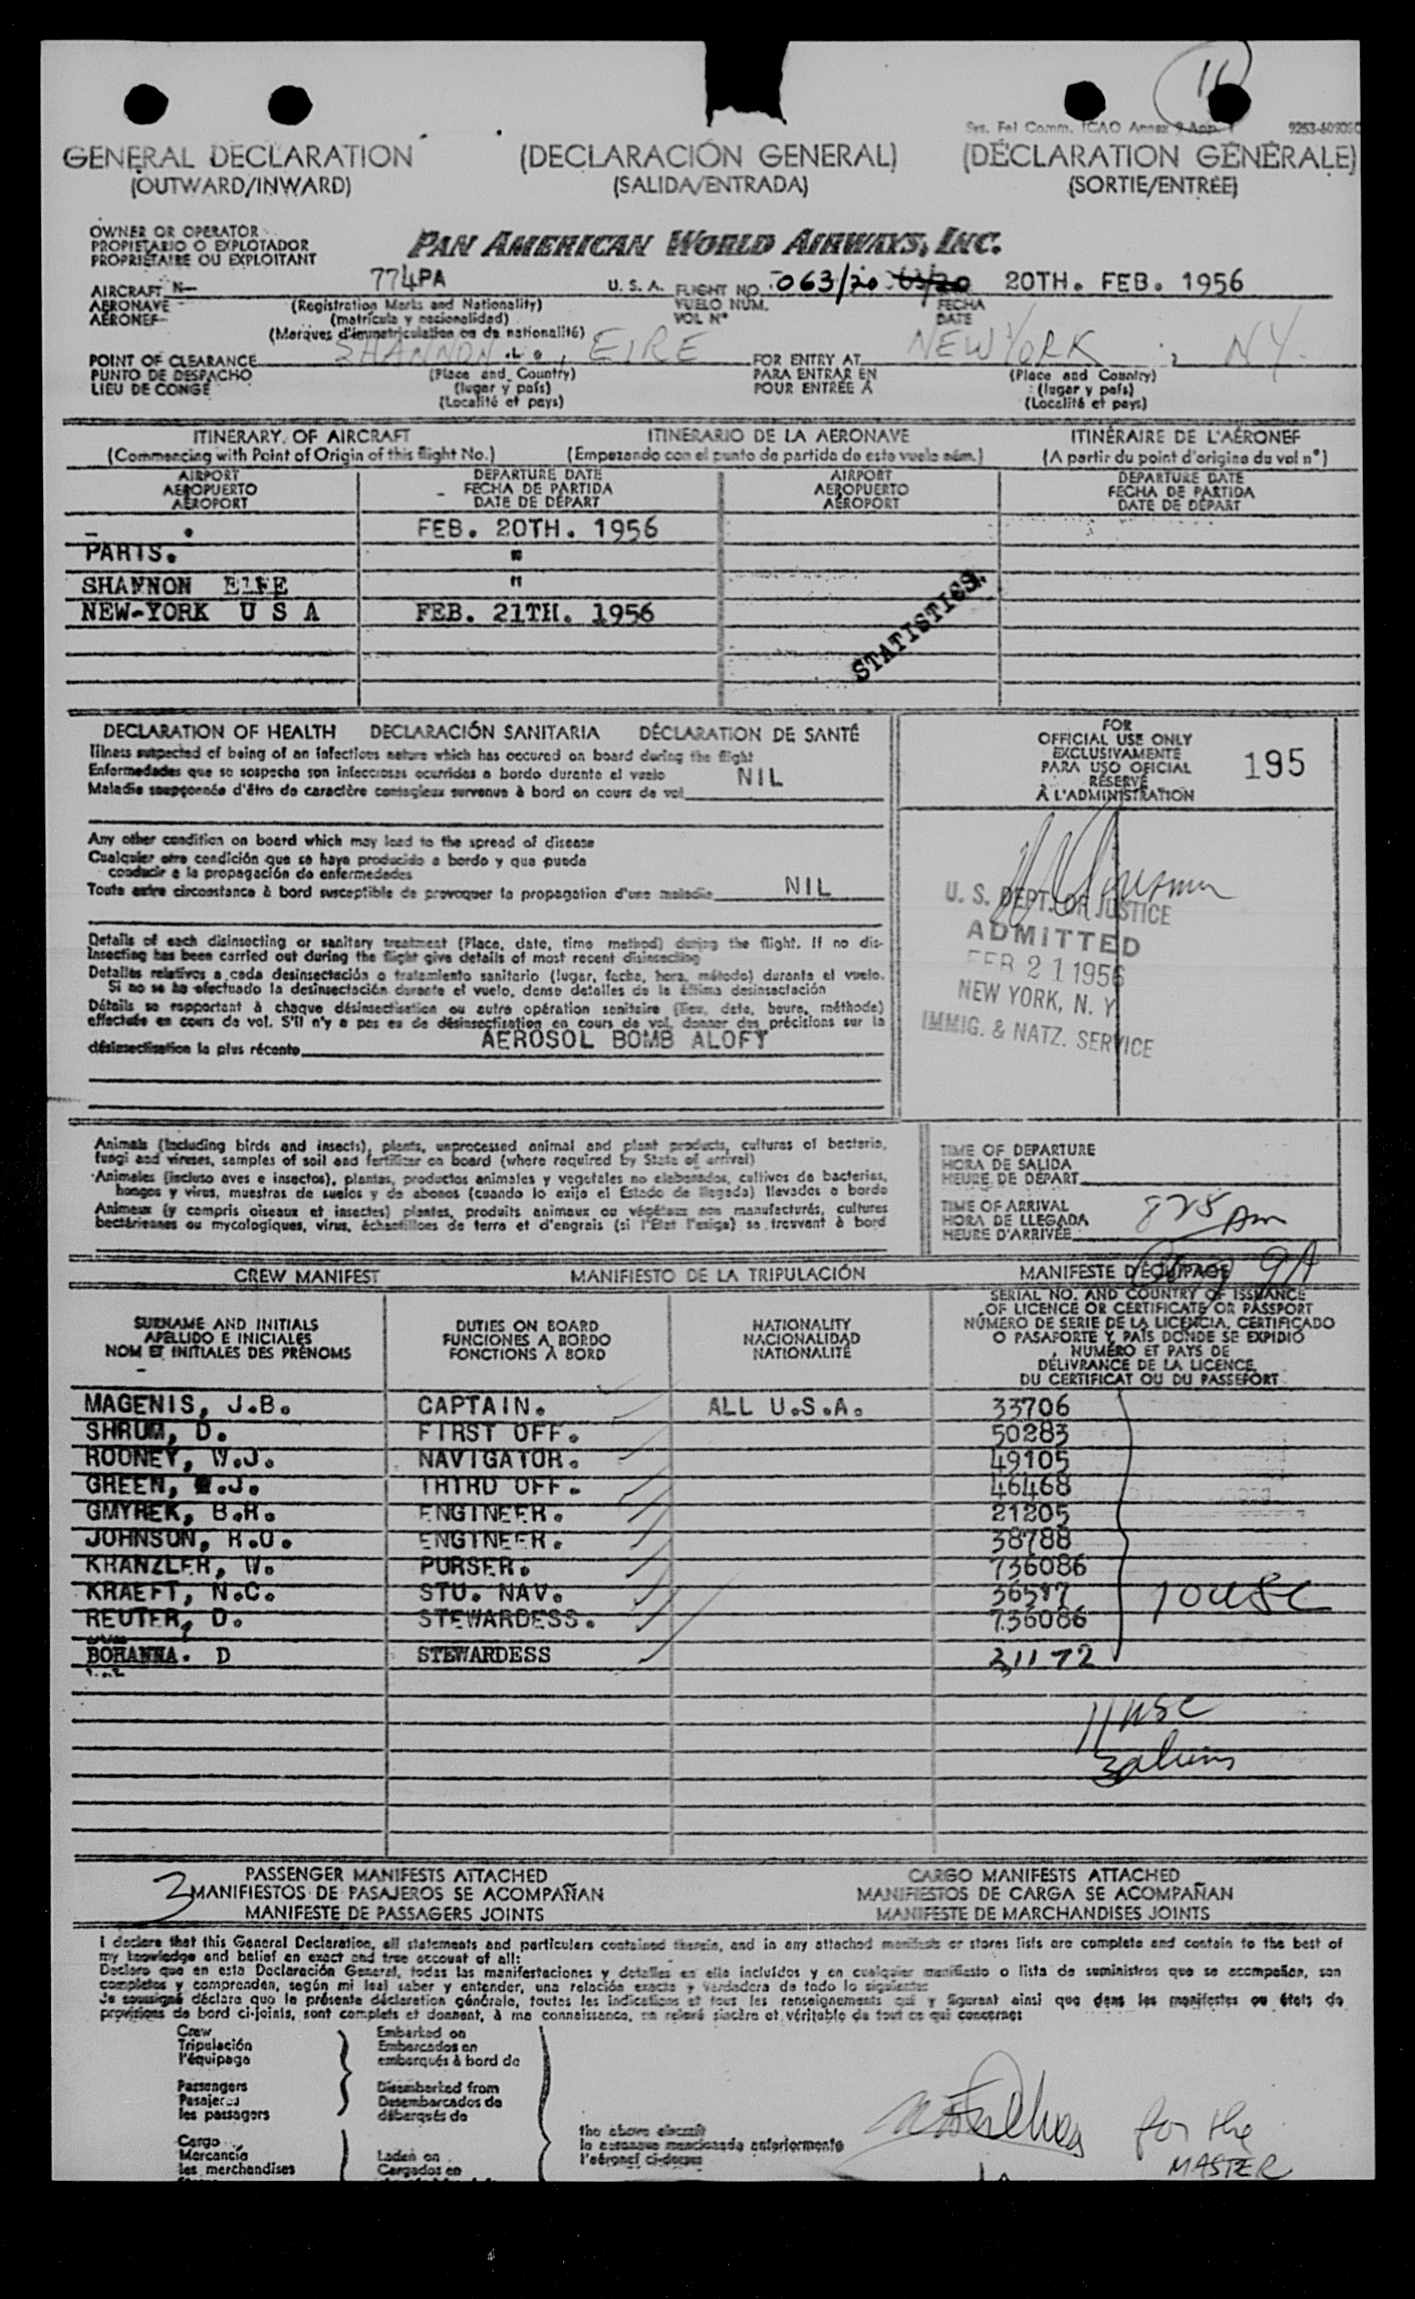 11
Sys. Fel Comm. ICAO Annex 9 App. 1 9253-60906C
GENERAL DECLARATION (DECLARACIÓN GENERAL) (DÉCLARATION GÉNÉRALE)
(OUTWARD/INWARD) (SALIDA/ENTRADA) (SORTIE/ENTRÉE)
OWNER OR OPERATOR
PROPIETARIO O EXPLOTADOR
PROPRIÉTAIRE OU EXPLOITANT
PAN AMERICAN WORLD AIRWAYS, INC.
AIRCRAFT N- 774PA U. S. A. FLIGHT NO. 063/20 63/20 20TH. FEB. 1956
AERONAVE (Registration Marks and Nationality) VUELO NÚM. FECHA
AÉRONEF (matrícula y nacionalidad) VOL N° DATE
(Marques d'immatriculation ou de nationalité)
POINT OF CLEARANCE SHANNON, EIRE FOR ENTRY AT NEW YORK, NY.
PUNTO DE DESPACHO (Place and Country) PARA ENTRAR EN (Place and Country)
LIEU DE CONGÉ (lugar y país) POUR ENTRÉE À (lugar y país)
(Localité et pays) (Localité et pays)
ITINERARY OF AIRCRAFT ITINERARIO DE LA AERONAVE ITINÉRAIRE DE L'AÉRONEF
(Commencing with Point of Origin of this flight No.) (Empezando con el punto de partida de este vuelo núm.) (A partir du point d'origine du vol n°)
AIRPORT DEPARTURE DATE AIRPORT DEPARTURE DATE
AEROPUERTO FECHA DE PARTIDA AEROPUERTO FECHA DE PARTIDA
AÉROPORT DATE DE DÉPART AÉROPORT DATE DE DÉPART
FEB. 20TH. 1956
PARIS. "
SHANNON EIRE "
NEW-YORK U S A FEB. 21TH. 1956
STATISTICS.
DECLARATION OF HEALTH DECLARACIÓN SANITARIA DÉCLARATION DE SANTÉ
Illness suspected of being of an infectious nature which has occured on board during the flight
Enfermedades que se sospecha son infecciosas ocurridas a bordo durante el vuelo NIL
Maladie soupçonnée d'être de caractère contagieux survenue à bord en cours de vol
Any other condition on board which may lead to the spread of disease
Cualquier otra condición que se haya producido a bordo y que pueda
conducir a la propagación de enfermedades
Toute autre circonstance à bord susceptible de provoquer la propagation d'une maladie NIL
Details of each disinsecting or sanitary treatment (Place, date, time method) during the flight. If no dis-
insecting has been carried out during the flight give details of most recent disinsecting
Detalles relativos a cada desinsectación o tratamiento sanitario (lugar, fecha, hora, método) durante el vuelo.
Si no se ha efectuado la desinsectación durante el vuelo, dense detalles de la última desinsectación
Détails se rapportant à chaque désinsectisation ou autre opération sanitaire (lieu, date, heure, méthode)
effectuée en cours de vol. S'il n'y a pas eu de désinsectisation en cours de vol, donner des précisions sur la
désinsectisation la plus récente AEROSOL BOMB ALOFT
FOR
OFFICIAL USE ONLY
EXCLUSIVAMENTE
PARA USO OFICIAL
RÉSERVÉ
À L'ADMINISTRATION
195
U. S. DEPT. OF JUSTICE
ADMITTED
FEB 21 1956
NEW YORK, N. Y.
IMMIG. & NATZ. SERVICE
Animals (including birds and insects), plants, unprocessed animal and plant products, cultures of bacteria,
fungi and viruses, samples of soil and fertilizer on board (where required by State of arrival)
Animales (incluso aves e insectos), plantas, productos animales y vegetales no elaborados, cultivos de bacterias,
hongos y virus, muestras de suelos y de abonos (cuando lo exija el Estado de llegada) llevados a bordo
Animaux (y compris oiseaux et insectes) plantes, produits animaux ou végétaux non manufacturés, cultures
bactériennes ou mycologiques, virus, échantillons de terre et d'engrais (si l'État l'exige) se trouvant à bord
TIME OF DEPARTURE
HORA DE SALIDA
HEURE DE DÉPART
TIME OF ARRIVAL
HORA DE LLEGADA
HEURE D'ARRIVÉE
825 Am
9A
CREW MANIFEST MANIFIESTO DE LA TRIPULACIÓN MANIFESTE D'ÉQUIPAGE
SURNAME AND INITIALS
APELLIDO E INICIALES
NOM ET INITIALES DES PRÉNOMS
DUTIES ON BOARD
FUNCIONES A BORDO
FONCTIONS À BORD
NATIONALITY
NACIONALIDAD
NATIONALITÉ
SERIAL NO. AND COUNTRY OF ISSUANCE
OF LICENCE OR CERTIFICATE OR PASSPORT
NÚMERO DE SERIE DE LA LICENCIA, CERTIFICADO
O PASAPORTE Y PAÍS DONDE SE EXPIDIÓ
NUMÉRO ET PAYS DE
DÉLIVRANCE DE LA LICENCE
DU CERTIFICAT OU DU PASSEPORT
MAGENIS, J.B. CAPTAIN. ALL U.S.A. 33706
SHRUM, D. FIRST OFF. 50283
RODNEY, W.J. NAVIGATOR. 49105
GREEN, .J. THIRD OFF. 46468
GMYREK, B.R. ENGINEER. 21205
JOHNSON, R.O. ENGINEER. 38788
KRANZLER, W. PURSER. 736086
KRAEFT, N.C. STU. NAV. 36587
REUTER, D. STEWARDESS. 736086
BOHANNA. D STEWARDESS 31172
10 USC
11 USC
3 aliens
3
PASSENGER MANIFESTS ATTACHED CARGO MANIFESTS ATTACHED
MANIFIESTOS DE PASAJEROS SE ACOMPAÑAN MANIFIESTOS DE CARGA SE ACOMPAÑAN
MANIFESTE DE PASSAGERS JOINTS MANIFESTE DE MARCHANDISES JOINTS
I declare that this General Declaration, all statements and particulars contained therein, and in any attached manifests or stores lists are complete and contain to the best of
my knowledge and belief an exact and true account of all:
Declaro que en esta Declaración General, todas las manifestaciones y detalles en ella incluidos y en cualquier manifiesto o lista de suministros que se acompañan, son
completos y comprenden, según mi leal saber y entender, una relación exacta y verdadera de todo lo siguiente:
Je soussigné déclare que la présente déclaration générale, toutes les indications et tous les renseignements qui y figurent ainsi que dans les manifestes ou états de
provisions de bord ci-joints, sont complets et donnent, à ma connaissance, un relevé sincère et véritable de tout ce qui concerne:
Crew Embarked on
Tripulación Embarcados en
l'équipage embarqués à bord de
Passengers Disembarked from
Pasajeros Desembarcados de
les passagers débarqués de
the above aircraft
la aeronave mencionada anteriormente
l'aéronef ci-dessus
Cargo
Mercancía Laden on
les merchandises Cargados en
for the
MASTER